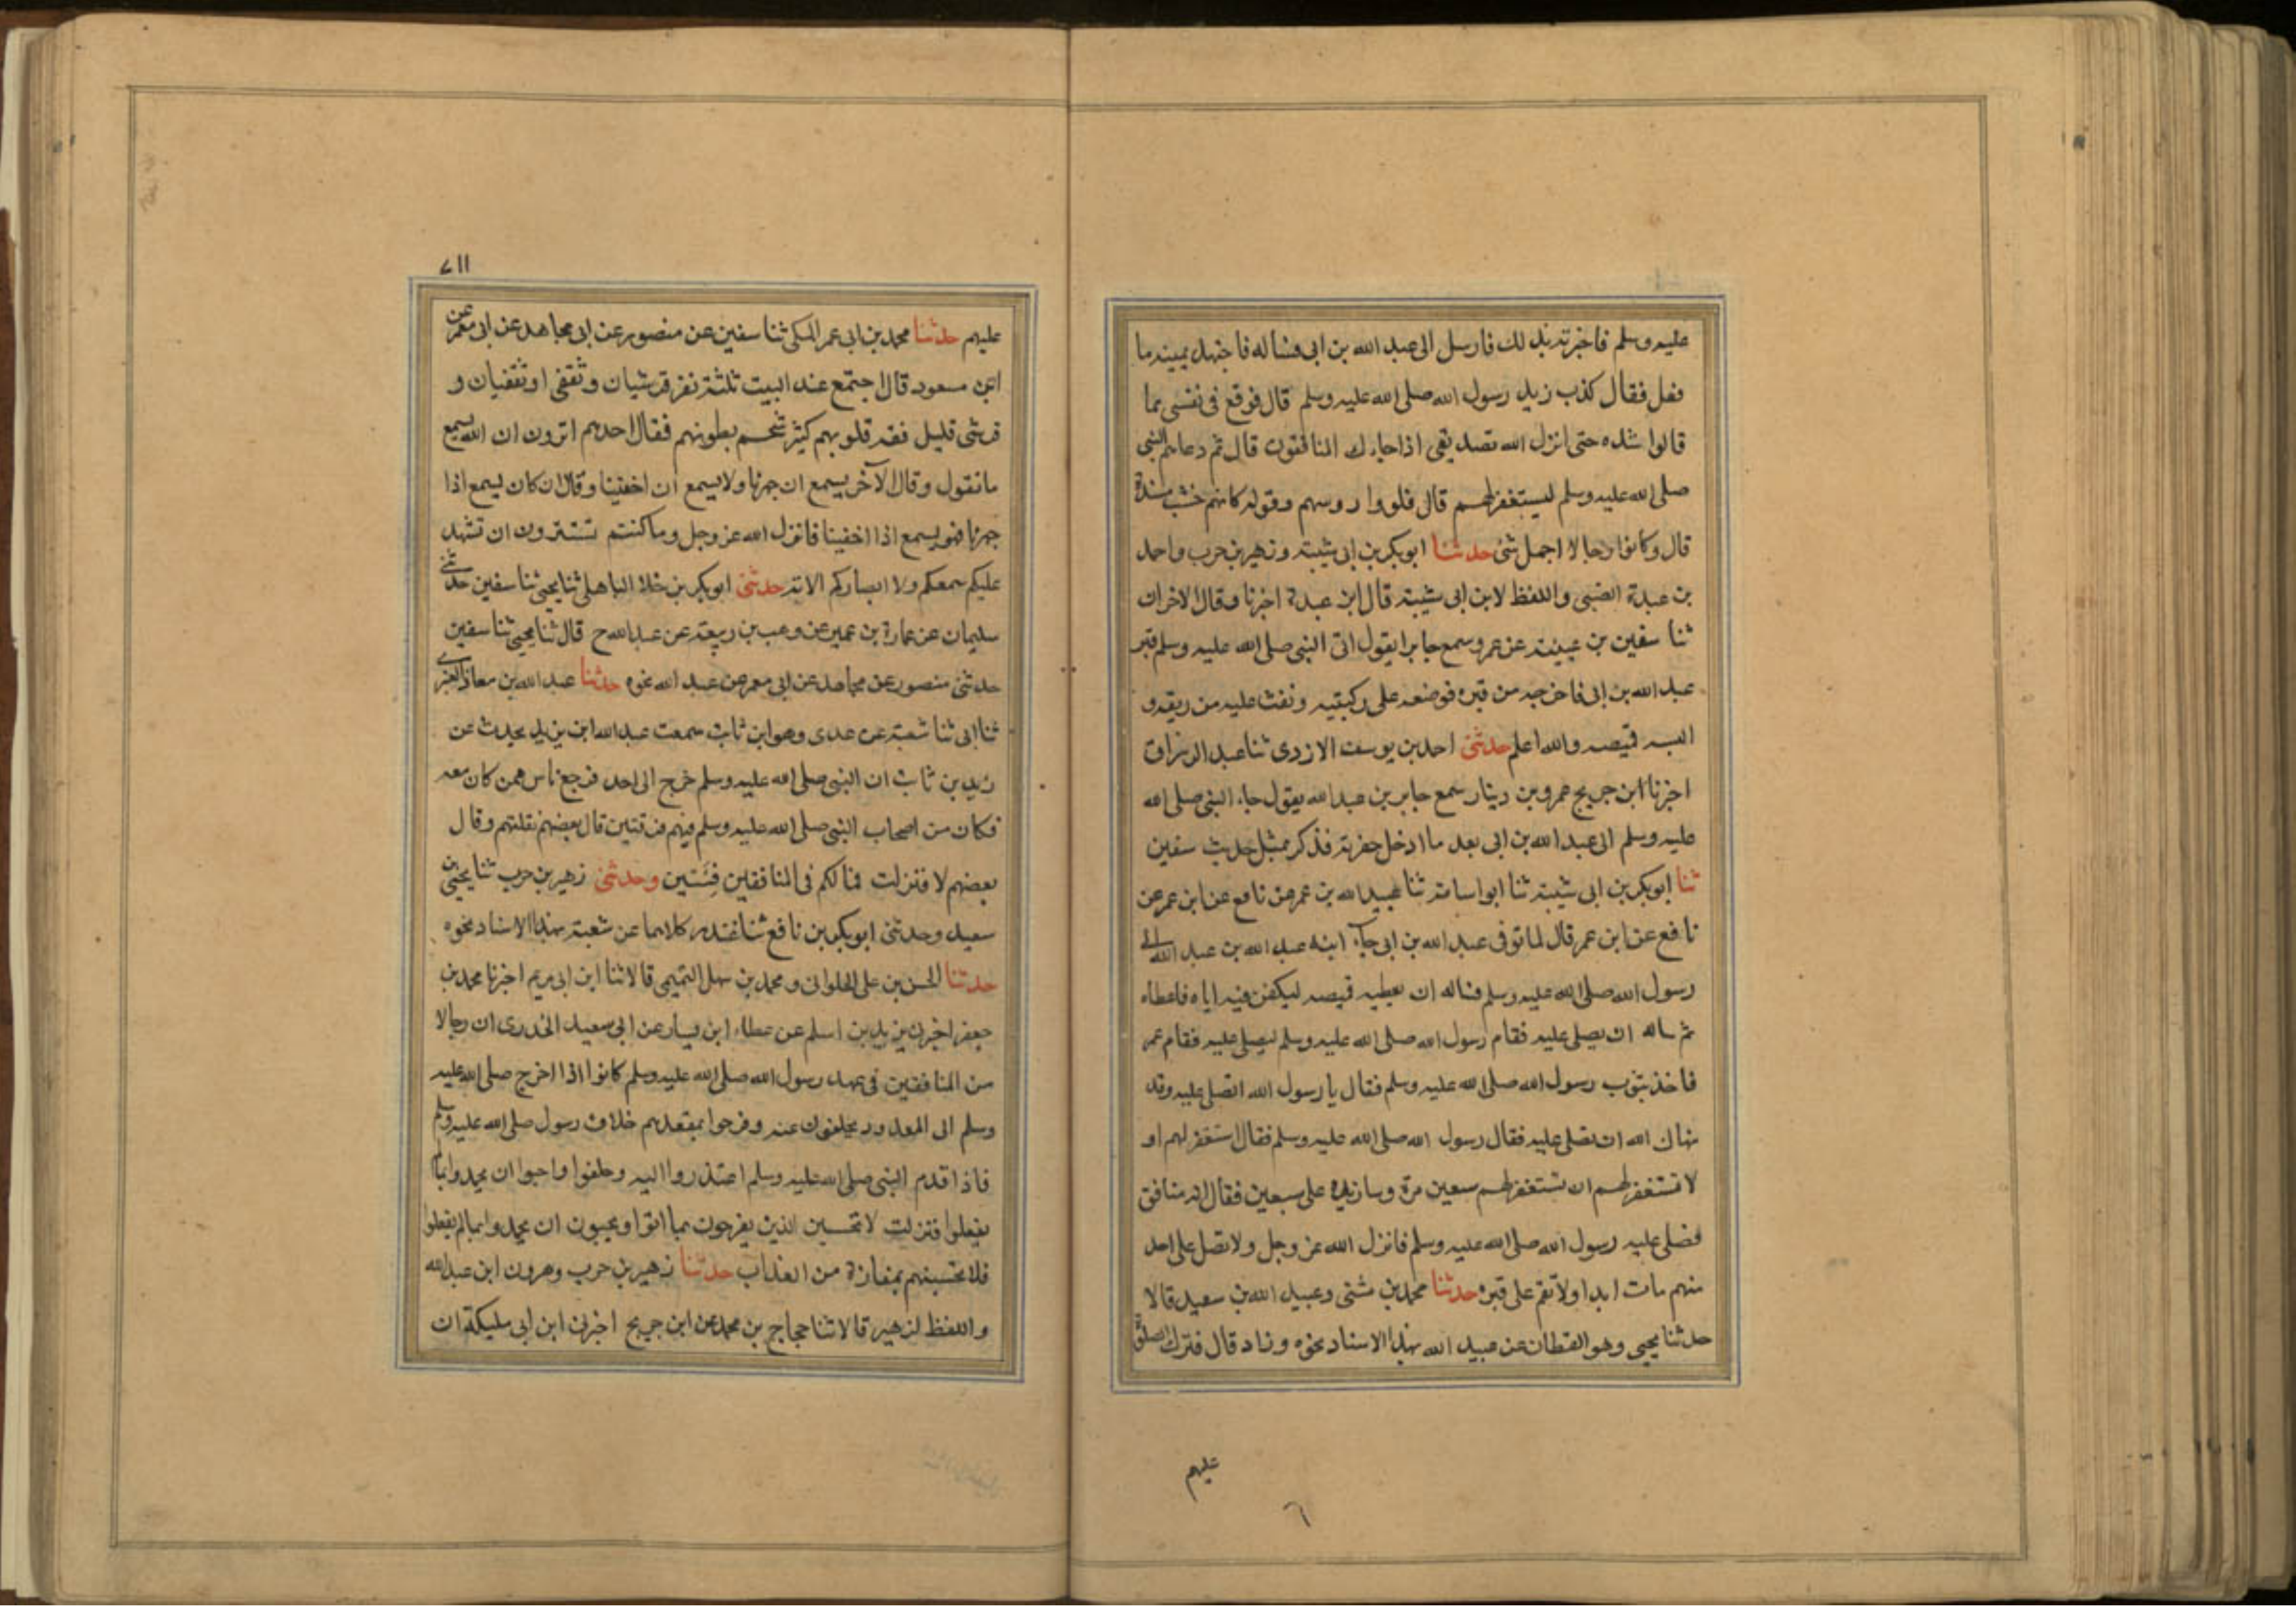 عليه وسلم فاخبرته بذلك فارسل الى عبد الله بن ابى فساله فاجتهد يمينه ما
فعل فقال كذب زيد رسول الله صلى الله عليه وسلم قال فوقع فى نفسى مما
قالوا شده حتى انزل الله تصديقى اذا جاءك المنافقون قال ثم دعاهم النبى
صلى الله عليه وسلم ليستغفر لهم قال فلووا روسهم وقوله كانهم خشب مسندة
قال وكانوا رجالا اجمل شئ حدثنا ابو بكر بن ابى شيبة وزهير بن حرب واحمد
بن عبدة الضبى واللفظ لابن ابى شيبة قال ابن عبدة اخبرنا وقال الاخران
ثنا سفين بن عيينه عن عمرو سمع جابرا يقول اتى النبى صلى الله عليه وسلم قبر
عبد الله بن ابى فاخرجه من قبره فوضعه على ركبتيه ونفث عليه من ريقه و
البسه قميصه والله اعلم حدثنى احمد بن يوسف الازدى ثنا عبد الرزاق
اخبرنا ابن جريج عمرو بن دينار سمع جابر بن عبد الله يقول جاء النبى صلى الله
عليه وسلم الى عبد الله بن ابى بعد ما ادخل حفرته فذكر بمثل حديث سفين
ثنا ابو بكر بن ابى شيبة ثنا ابو اسامة ثنا عبيد الله بن عمر عن نافع عن ابن عمر عن
نافع عن ابن عمر قال لما توفى عبد الله بن ابى جاء ابنه عبد الله بن عبد الله الى
رسول الله صلى الله عليه وسلم فساله ان يعطيه قميصه ليكفن فيه اباه فاعطاه
ثم ساله ان يصلى عليه فقام رسول الله صلى الله عليه وسلم ليصلى عليه فقام عمر
فاخذ بثوب رسول الله صلى الله عليه وسلم فقال يا رسول الله اتصلى عليه وقد
نهاك الله ان تصلى عليه فقال رسول الله صلى الله عليه وسلم فقال استغفر لهم او
لا تستغفر لهم ان تستغفر لهم سبعين مرة وسازيده على سبعين فقال انه منافق
فصلى عليه رسول الله صلى الله عليه وسلم فانزل الله عز وجل ولا تصل على احد
منهم مات ابدا ولا تقم على قبره حدثنا محمد بن مثنى وعبيد الله بن سعيد قالا
حدثنا يحيى وهو القطان عن عبيد الله بهذا الاسناد نحوه وزاد قال فترك الصلوة
عليهم
٦
٧١١
عليهم حدثنا محمد بن ابى عمر المكى ثنا سفين عن منصور عن ابى مجاهد عن ابى معمر عن
ابن مسعود قال اجتمع عند البيت ثلثة نفر قرشيان وثقفى او ثقفيان و
قرشى قليل فقه قلوبهم كثير شحم بطونهم فقال احدهم اترون ان الله يسمع
ما نقول وقال الآخر يسمع ان جهرنا ولا يسمع ان اخفينا وقال ان كان يسمع اذا
جهرنا فهو يسمع اذا اخفينا فانزل الله عز وجل وما كنتم تستترون ان تشهد
عليكم سمعكم ولا ابصاركم الاية حدثنى ابو بكر بن خلاد الباهلى ثنا يحيى ثنا سفين حدثنى
سليمان عن عمارة بن عمير عن وهب بن ربيعة عن عبد الله ح قال ثنا يحيى ثنا سفين
حدثنى منصور عن مجاهد عن ابى معمر عن عبد الله نحوه حدثنا عبد الله بن معاذ العنبرى
ثنا ابى ثنا شعبة عن عدى وهو ابن ثابت سمعت عبد الله ابن يزيد يحدث عن
زيد بن ثابت ان النبى صلى الله عليه وسلم خرج الى احد فرجع ناس ممن كان معه
فكان من اصحاب النبى صلى الله عليه وسلم فيهم فرقتين قال بعضهم نقتلهم وقال
بعضهم لا فنزلت فما لكم فى المنافقين فئتين وحدثنى زهير بن حرب ثنا يحيى بن
سعيد وحدثنى ابو بكر بن نافع ثنا غندر كلاهما عن شعبة بهذا الاسناد نحوه
حدثنا الحسن بن على الحلوانى ومحمد بن سهل التميمى قالا ثنا ابن ابى مريم اخبرنا محمد بن
جعفر اخبرنى زيد بن اسلم عن عطاء ابن يسار عن ابى سعيد الخدرى ان رجالا
من المنافقين فى عهد رسول الله صلى الله عليه وسلم كانوا اذا اخرج صلى الله عليه
وسلم الى تخلفون عنه وفرحوا بمقعدهم خلاف رسول صلى الله عليه وسلم
فاذا قدم النبى صلى الله عليه وسلم اعتذروا اليه وحلفوا واحبوا ان يحمدوا بما
يفعلوا فنزلت لا تحسبن الذين يفرحون بما اتوا ويحبون ان يحمدوا بما لم يفعلوا
فلا تحسبنهم بمفازة من العذاب حدثنا زهير بن حرب وهرون ابن عبد الله
واللفظ لزهير قالا ثنا حجاج بن محمد عن ابن جريج اخبرنى ابن ابى مليكة ان